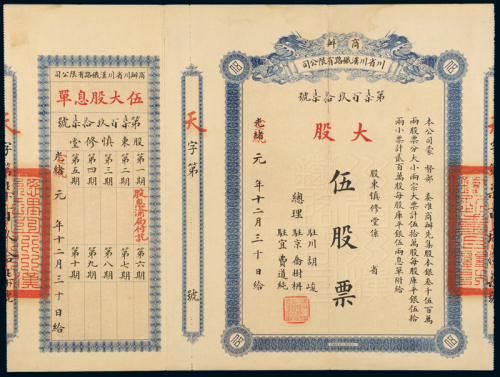 商辦
川省川漢鐵路有限公司
第柒百玖拾柒號
本公司蒙 督部 奏准商辦先集股本銀叁千伍百萬
兩股票分大小兩宗大票計伍拾萬股每股庫平銀伍拾
兩小票計貳百萬股每股庫平銀伍兩息單附給
大股
伍股票
股東慎修堂係 省
總理
駐川胡峻
駐京喬樹枬
駐宜費道純
元年十二月三十日給
天字第 號
商辦川省川漢鐵路有限公司
伍大股息單
第柒百玖拾柒號
股東慎修堂
第一期
第二期
第三期
第四期
第五期
第六期
第七期
第八期
第九期
第十期
元年十二月三十日給
天字第